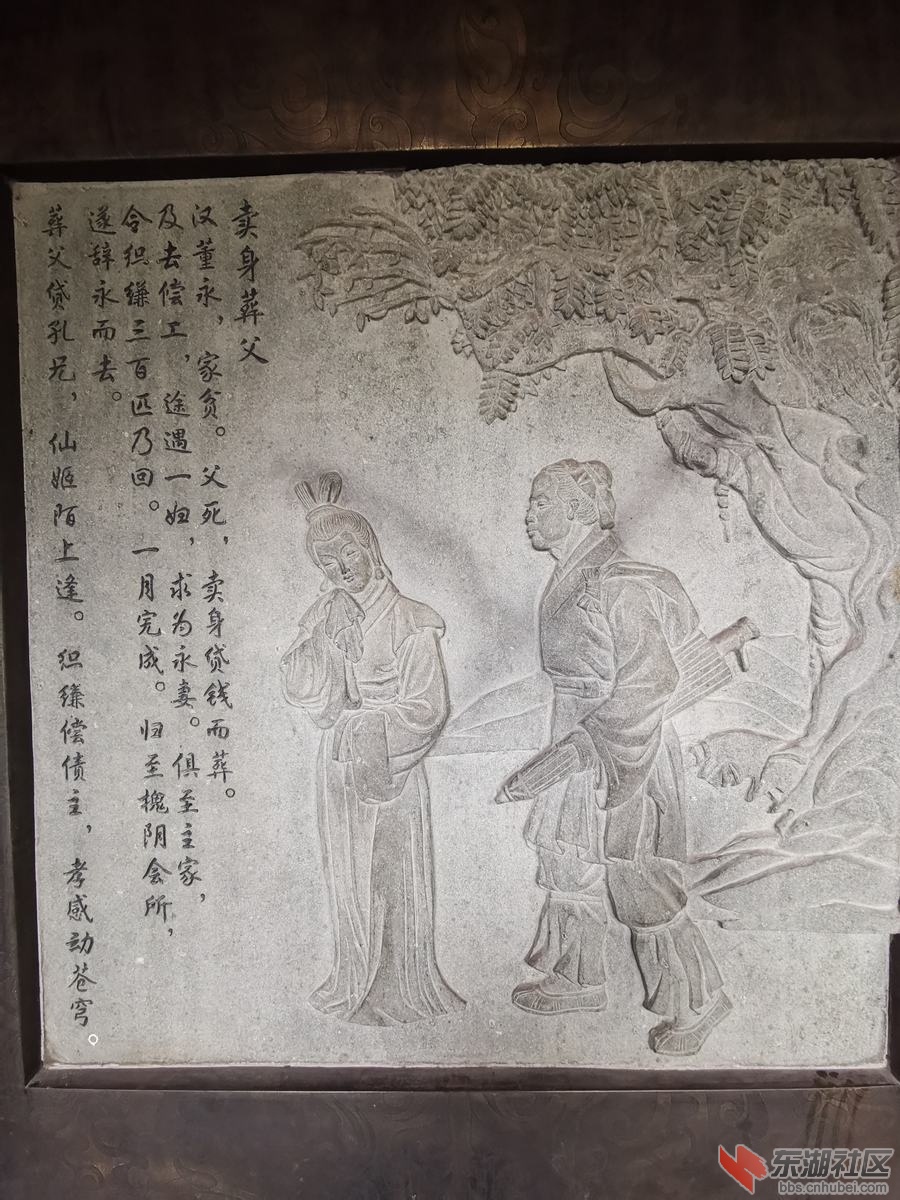 卖身葬父
汉董永，家贫。父死，卖身贷钱而葬。
及去偿工，途遇一妇，求为永妻。俱至主家，
令织缣三百匹乃回。一月完成。归至槐阴会所，
遂辞永而去。
葬父贷孔兄，仙姬陌上逢。织缣偿债主，孝感动苍穹。
东湖社区
bbs.cnhubei.com